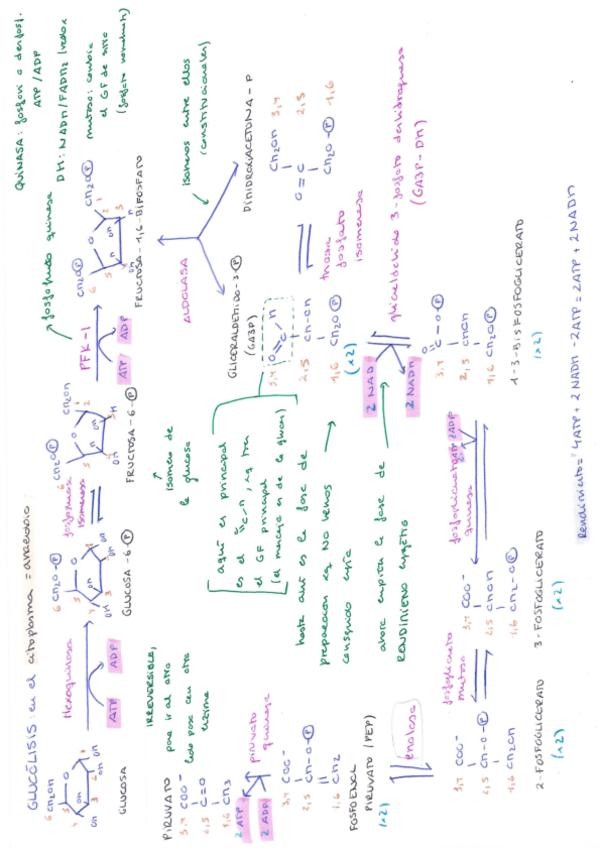 GLUCÓLISIS: en el citoplasma = anaerobio:
QUINASA: fosfori o desfosf.
ATP/ADP
DH: NADH/FADH2 (redox
mutasa: cambia
el GF de sitio
(fosfato normalmente)
GLUCOSA
Hexoquinasa
ATP
ADP
GLUCOSA-6-P
fosfohexosa
isomerasa
FRUCTOSA-6-P
PFK-1
fosfofructo quinasa
ATP
ADP
FRUCTOSA-1,6-BIFOSFATO
IRREVERSIBLE,
para ir al otro
lado pasa con otra
enzima
isomero de
la glucosa
ALDOLASA
isomeros entre ellos
(constitucionales)
GLICERALDEHIDO-3-P
(GA3P)
DIHIDROXIACETONA-P
triosa
fosfato
isomerasa
(x2)
aquí es principal
el GF principal
hasta aquí es la fase de
preparacion xq NO hemos
conseguido
ahora empieza la fase de
RENDIMIENTO energético
2 NAD
2 NADH
gliceraldehido 3-fosfato deshidrogenasa
(GA3P-DH)
1-3-BISFOSFOGLICERATO
(x2)
fosfoglicerato
quinasa
2ADP
2ATP
3-FOSFOGLICERATO
(x2)
fosfoglicerato
mutasa
2-FOSFOGLICERATO
(x2)
enolasa
FOSFOENOL
PIRUVATO (PEP)
(x2)
piruvato
quinasa
2 ATP
2 ADP
PIRUVATO
Rendimiento = 4ATP + 2NADH - 2ATP = 2ATP + 2NADH